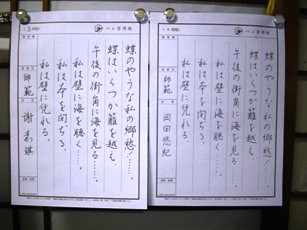 蝶のやうな私の郷愁!……。
蝶はいくつか籬を越え、
午後の街角に海を見る……。
私は壁に海を聴く……。
私は本を閉ぢる。
私は壁に凭れる。
師範
岡田悠紀
蝶のやうな私の郷愁!……。
蝶はいくつか籬を越え、
午後の街角に海を見る……。
私は壁に海を聴く……。
私は本を閉ぢる。
私は壁に凭れる。
師範
謝秀琪